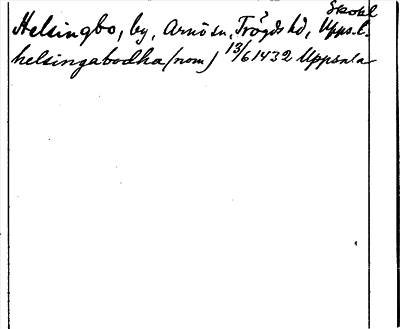 Skokl
Helsingbo, by, Arnö sn, Trögds hd, Upps.l.
helsingabodha (nom) 13/6 1432 Uppsala